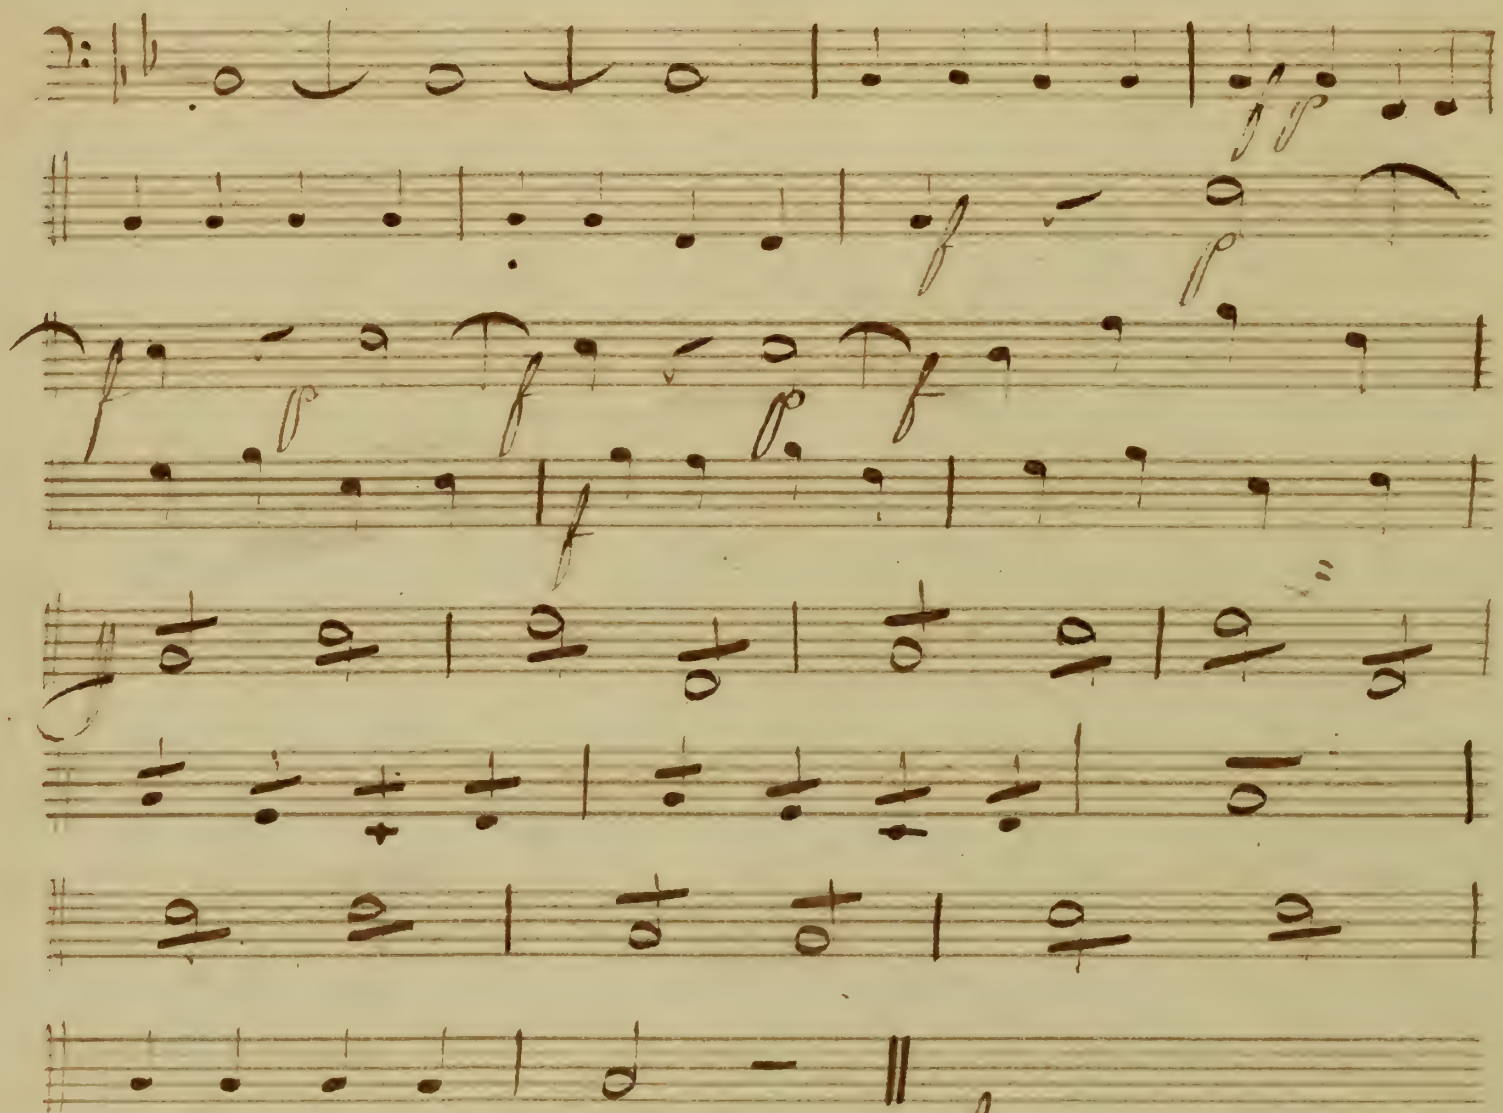 f p
f p
f p f p f
f
f